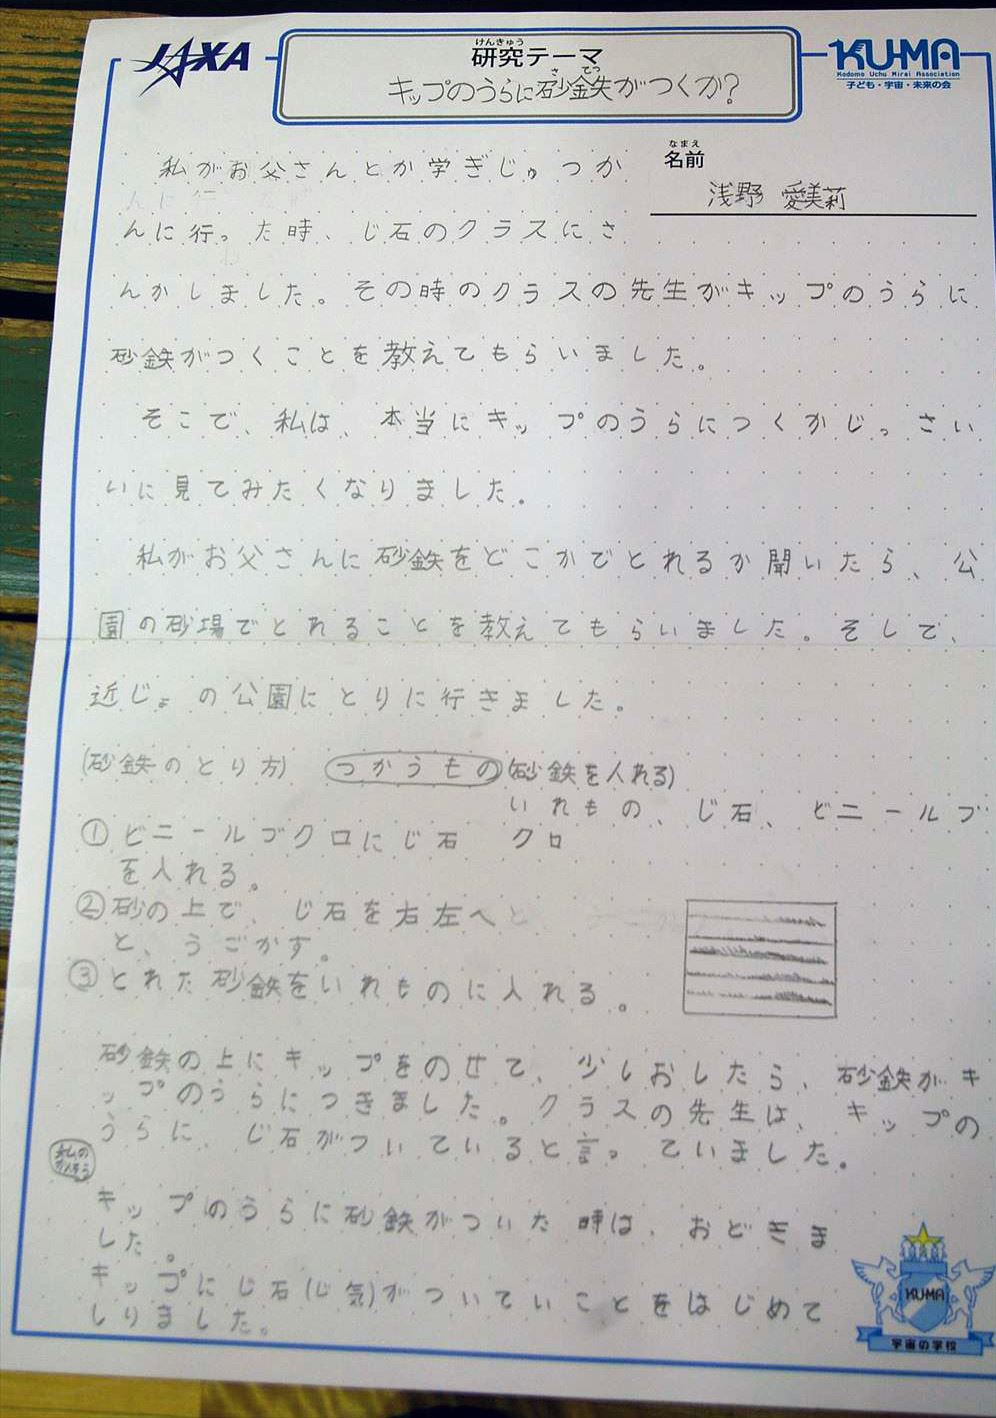 JAXA
けんきゅう
研究テーマ
さ てつ
キップのうらに砂鉄がつくか?
KU-MA
Kodomo Uchu Mirai Association
子ども・宇宙・未来の会
なまえ
名前
浅野 愛美莉
私がお父さんとか学ぎじゅつか
んに行った時、じ石のクラスにさ
んかしました。その時のクラスの先生がキップのうらに
砂鉄がつくことを教えてもらいました。
そこで、私は、本当にキップのうらにつくかじっさい
いに見てみたくなりました。
私がお父さんに砂鉄をどこかでとれるか聞いたら、公
園の砂場でとれることを教えてもらいました。そして、
近じょの公園にとりに行きました。
(砂鉄のとり方)
つかうもの(砂鉄を入れる)
いれもの、じ石、ビニールブ
クロ
①ビニールブクロにじ石
を入れる。
②砂の上で、じ石を右左へ
と、うごかす。
③とれた砂鉄をいれものに入れる。
砂鉄の上にキップをのせて、少しおしたら、砂鉄がキ
ップのうらにつきました。クラスの先生は、キップの
うらに、じ石がついていると言っていました。
私の
かんそう
キップのうらに砂鉄がついた時は、おどきま
した。
キップにじ石(じ気)がついていことをはじめて
しりました。
KUMA
宇宙の学校